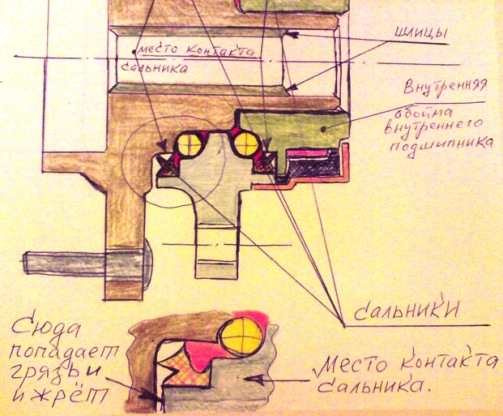 шлицы
место контакта
сальника
Внутренняя
обойма
внутреннего
подшипника
сальники
Сюда
попадает
грязь и
и жрёт
Место контакта
сальника.